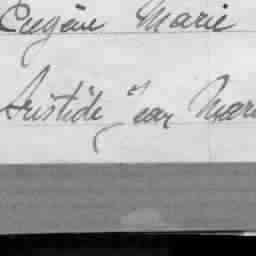 Eugène Marie
Aristide Jean Mari